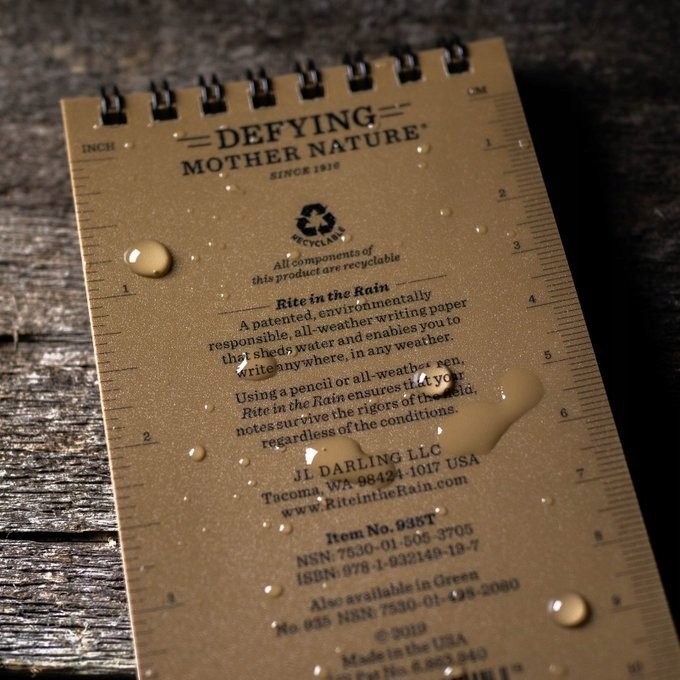 INCH
CM
DEFYING
MOTHER NATURE®
SINCE 1916
RECYCLABLE
All components of
this product are recyclable
Rite in the Rain
A patented, environmentally
responsible, all-weather writing paper
that sheds water and enables you to
write anywhere, in any weather.
Using a pencil or all-weather pen,
Rite in the Rain ensures that your
notes survive the rigors of the field,
regardless of the conditions.
JL DARLING LLC
Tacoma, WA 98424-1017 USA
www.RiteintheRain.com
Item No. 935T
NSN: 7530-01-505-3705
ISBN: 978-1-932149-19-7
Also available in Green
No. 935 NSN: 7530-01-498-2080
© 2019
Made in the USA
Pat No. 6,863,940
1
2
3
1
2
3
4
5
6
7
8
9
10